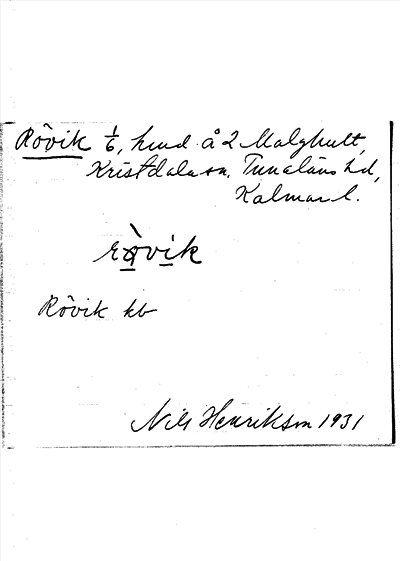 Rövik 1/6, hmd å 2 Malghult,
Kristdala sn. Tunaläns hd,
Kalmar l.
rövik
Rövik kb
Nils Henrikson 1931